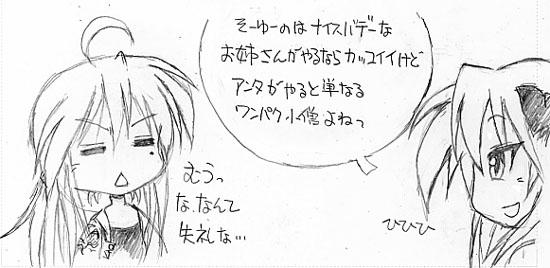 そーゆーのはナイスバデーな
お姉さんがやるならカッコイイけど
アンタがやると単なる
ワンパク小僧よねっ
むうっ
な、なんて
失礼な…
ひひひ